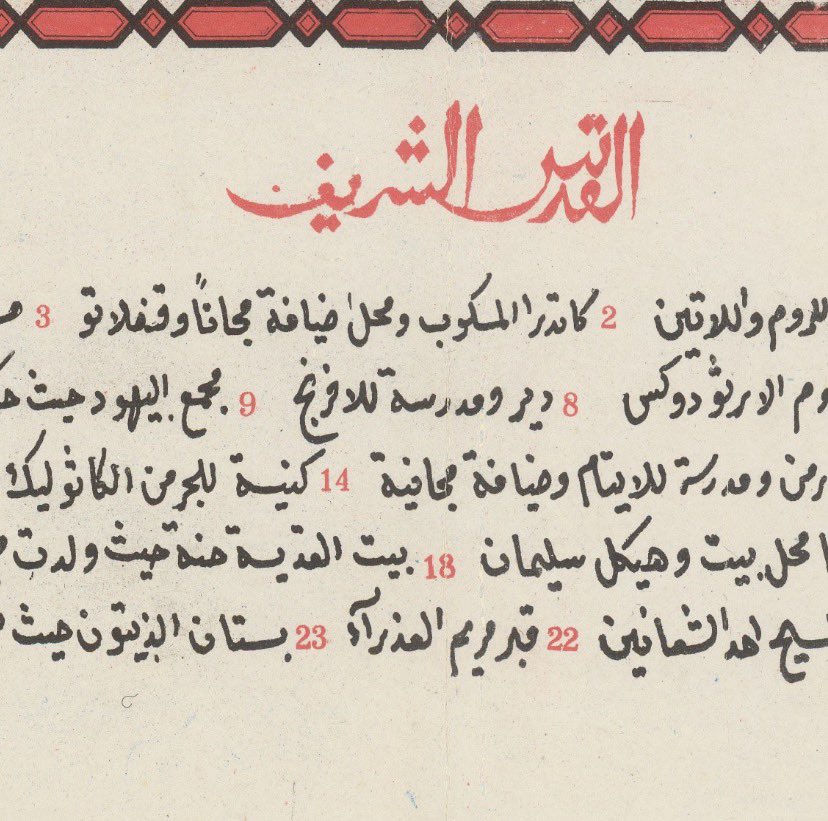 القدس الشريف
للروم واللاتين 2 كاتدرا المسكوب ومحل ضيافة مجاناً وقنفلاتو 3
وم الارثودوكس 8 دير ومدرسة للافرنج 9 مجمع اليهود حيث
رمن ومدرسة للايتام وضيافة مجانية 14 كنيسة للجرمن الكاثوليك
محل بيت وهيكل سليمان 18 بيت القديسة حنة حيث ولدت
سيح احد الشعانين 22 قبر مريم العذرآء 23 بستان الزيتون حيث